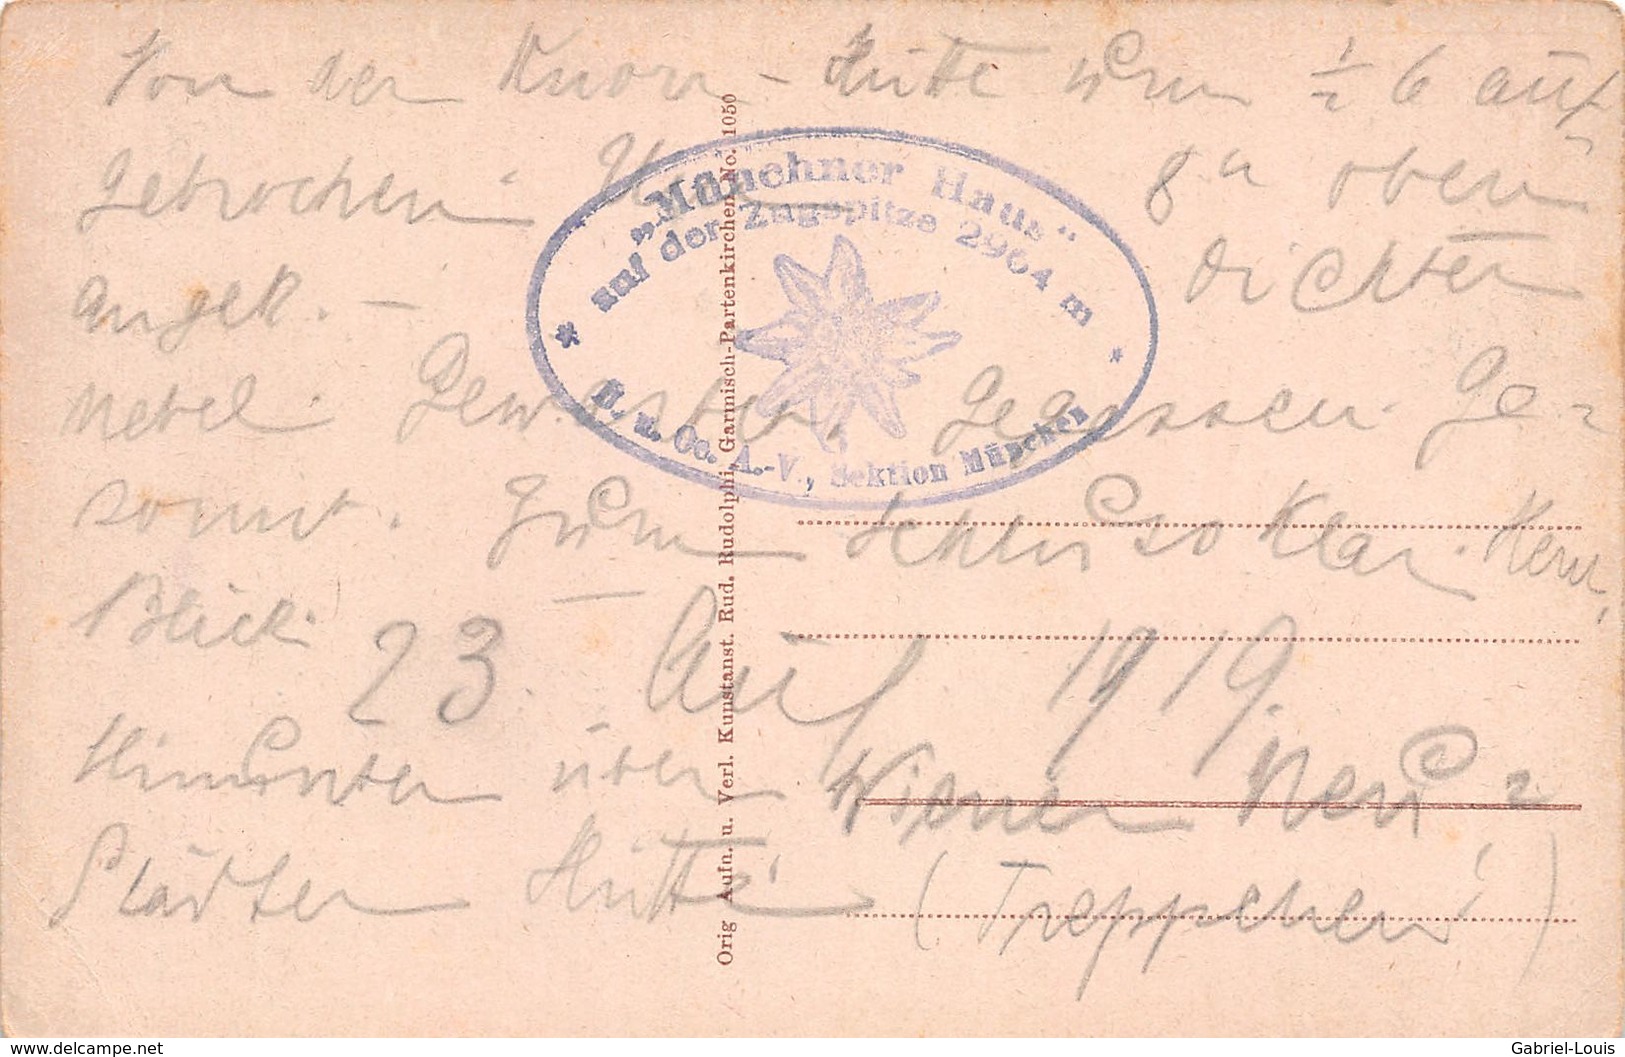 Von der Knorr-Hütte um ½ 6 auf
gebrochen. 8 u oben
angek. – Dichter
Nebel. gegessen. Ge=
sonnt. Zum Schluss so klar. Herrl.
Blick. –
23. Aug 1919.
Hinunter über Wiener Neu=
Städter Hütte (Treppchen!)
„Münchner Haus“
auf der Zugspitze 2964 m
D. u. Oe. A.-V., Sektion München
Orig Aufn. u. Verl. Kunstanst. Rud. Rudolphi, Garmisch-Partenkirchen No. 1050
delcampe.net
Gabriel-Louis